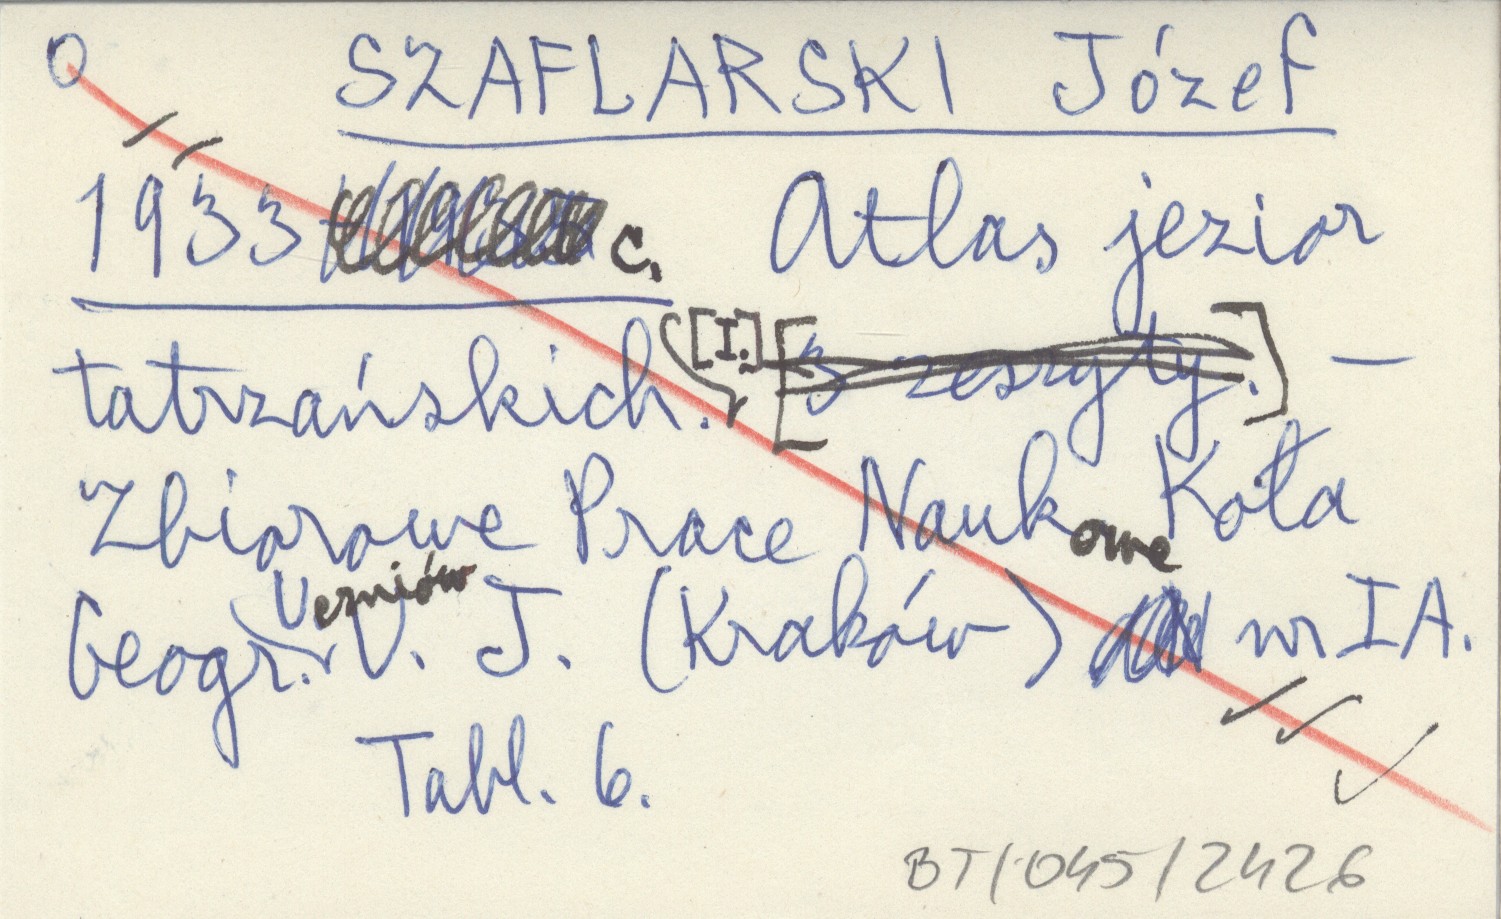 SZAFLARSKI Józef
1933 c. Atlas jezior
tatrzańskich. [I.] [3 zeszyty.] —
Zbiorowe Prace Naukowe Koła
Geogr. Uczniów U. J. (Kraków) nr IA.
Tabl. 6.
BT/045/2426